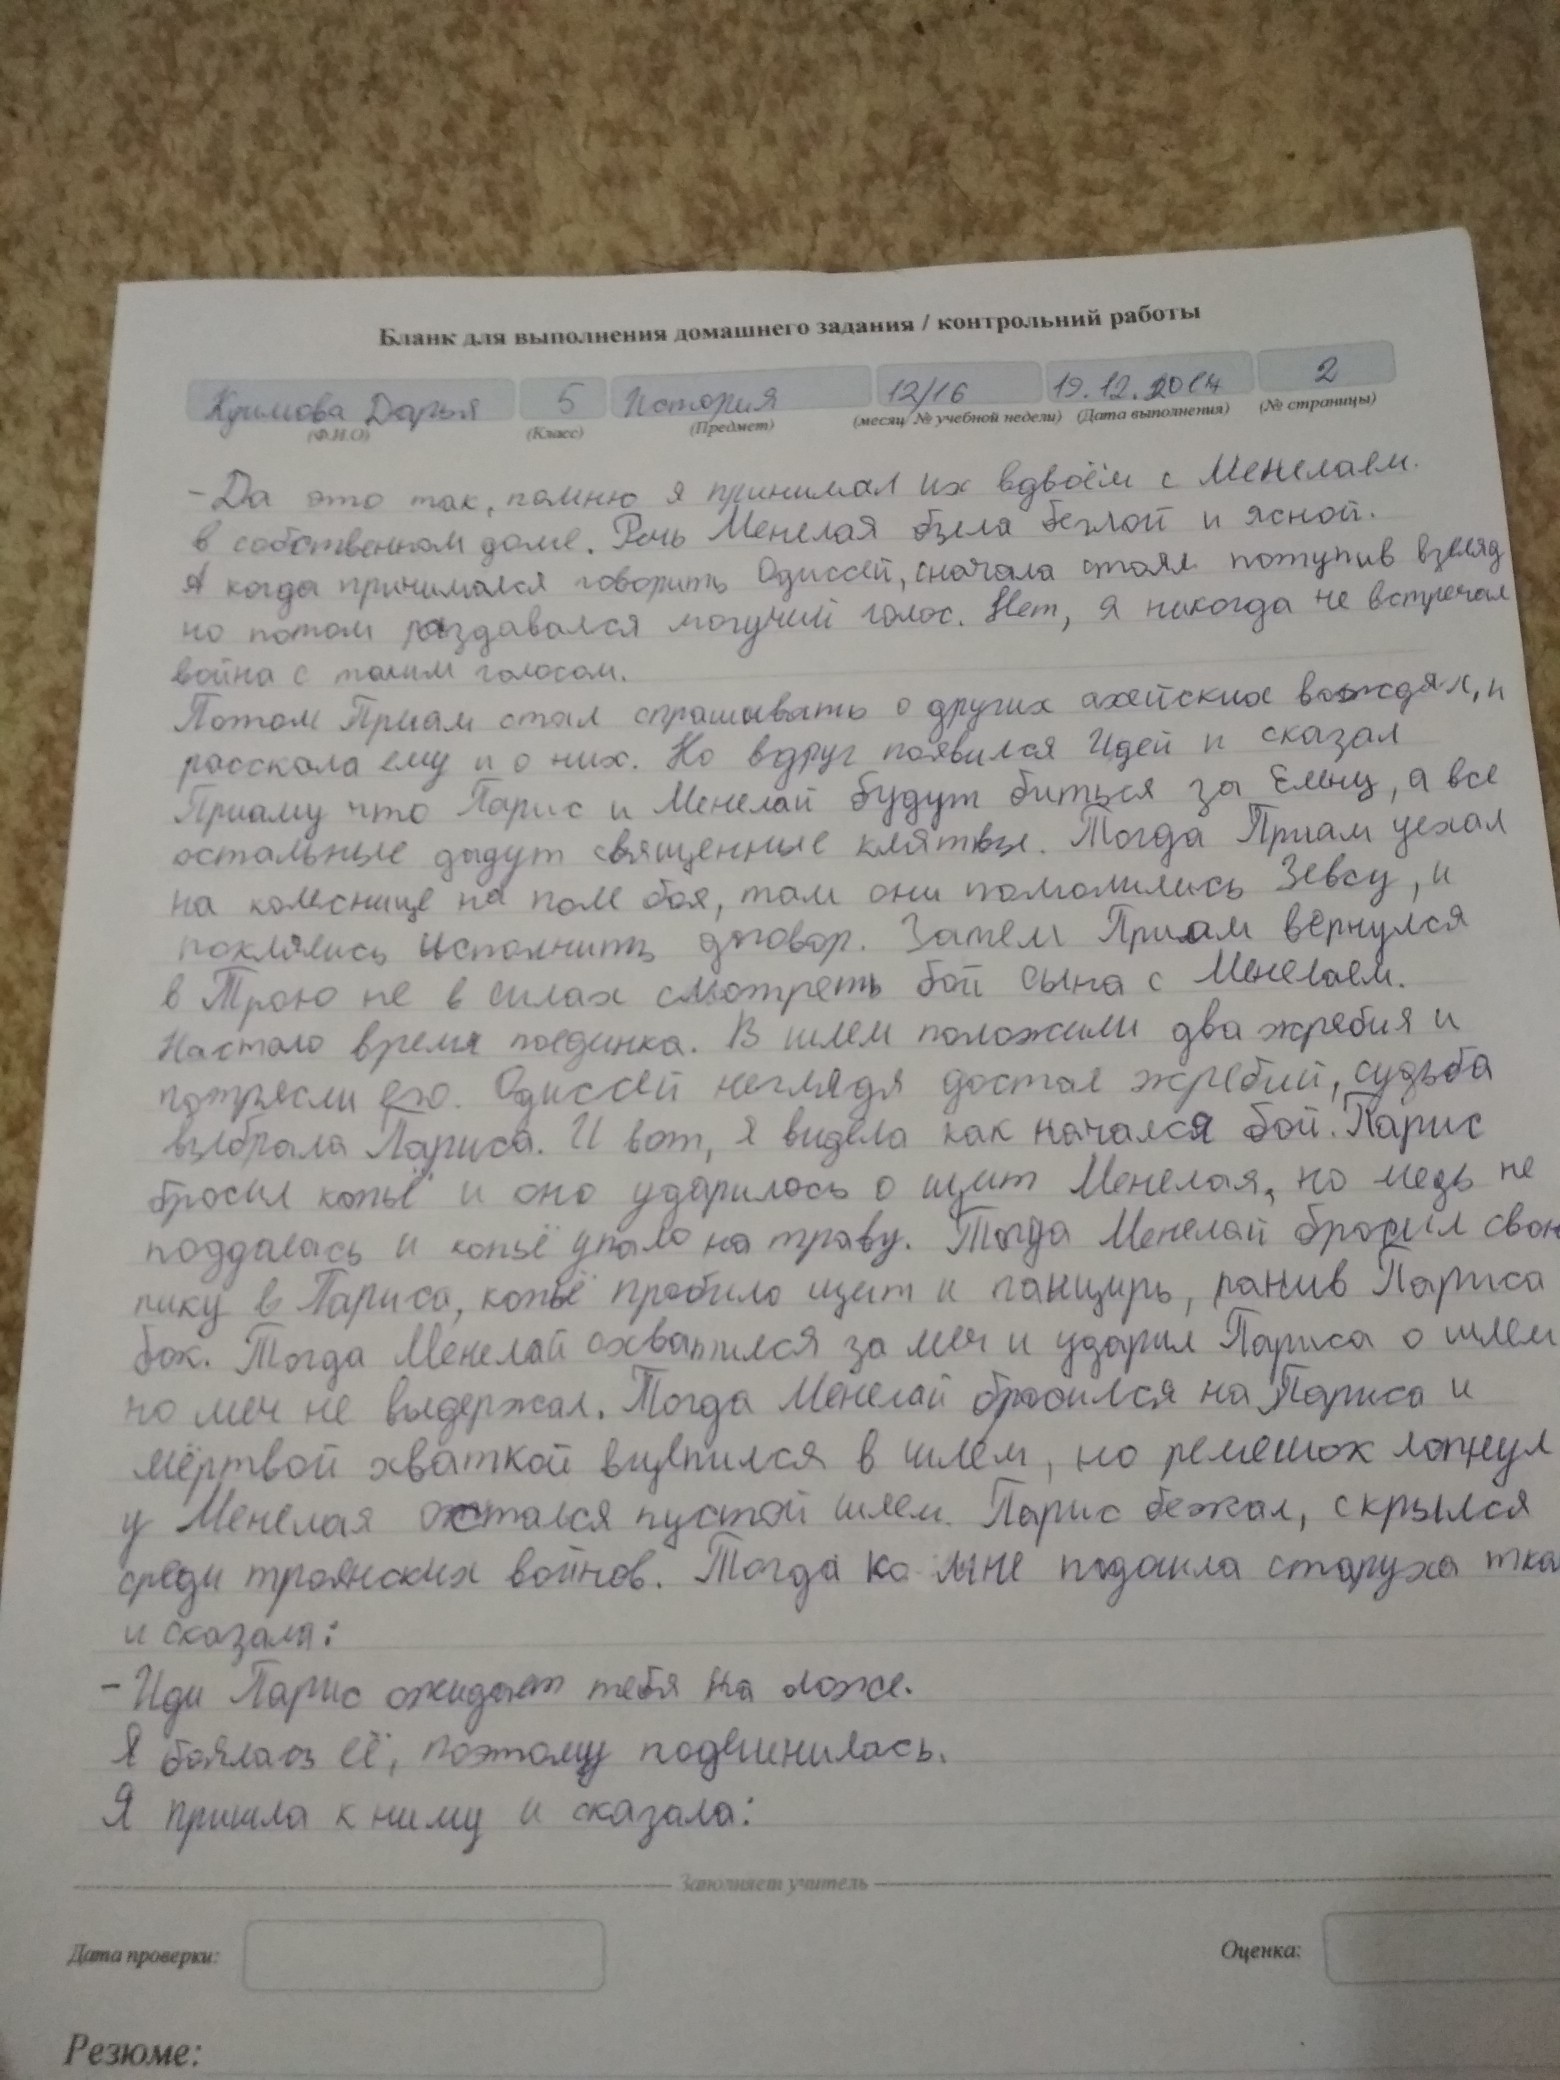 Бланк для выполнения домашнего задания / контрольний работы
Дарья 5 История 12/16 19.12. 2
(Ф.И.О) (Класс) (Предмет) (месяц/ № учебной недели) (Дата выполнения) (№ страницы)
-Да это так, помню я принимал их вдвоём с Менелаем.
в собственном доме. Речь Менелая была беглой и ясной.
А когда принимался говорить Одиссей, сначала стоял потупив взгляд
но потом раздавался могучий голос. Нет, я никогда не встречал
война с таким голосом.
Потом Приам стал спрашивать о других ахейских вождях, и
расскала ему и о них. Но вдруг появился Идей и сказал
Приаму что Парис и Менелай будут биться за Елену, а все
остальные дадут священные клятвы. Тогда Приам уехал
на колеснице на поле боя, там они помолились Зевсу, и
поклялись исполнить договор. Затем Приам вернулся
в Трою не в силах смотреть бой сына с Менелаем.
Настало время поединка. В шлем положили два жребия и
потрясли его. Одиссей неглядя достал жребий, судьба
выбрала Париса. И вот, я видела как начался бой. Парис
бросил копьё и оно ударилось о щит Менелая, но медь не
поддалась и копьё упало на траву. Тогда Менелай бросил свою
пику в Париса, копьё пробило щит и панцирь, ранив Париса
бок. Тогда Менелай схватился за меч и ударил Париса о шлем
но меч не выдержал. Тогда Менелай бросился на Париса и
мёртвой хваткой вцепился в шлем, но ремешок лопнул
у Менелая остался пустой шлем. Парис бежал, скрылся
среди троянских войнов. Тогда ко мне подошла старуха тка
и сказала:
-Иди Парис ожидает тебя на ложе.
Я боялась её, поэтому подчинилась.
Я пришла к ниму и сказала:
Заполняет учитель
Дата проверки: Оценка:
Резюме: